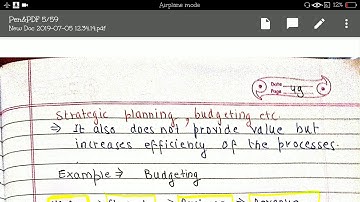 Airplane mode
12%
Pen&PDF 5/59
New Doc 2019-07-05 12.34.14.pdf
Date
Page 49
Strategic planning, budgeting etc.
⇒ It also does not provide value but
increases efficiency of the processes.
Example ⇒ Budgeting